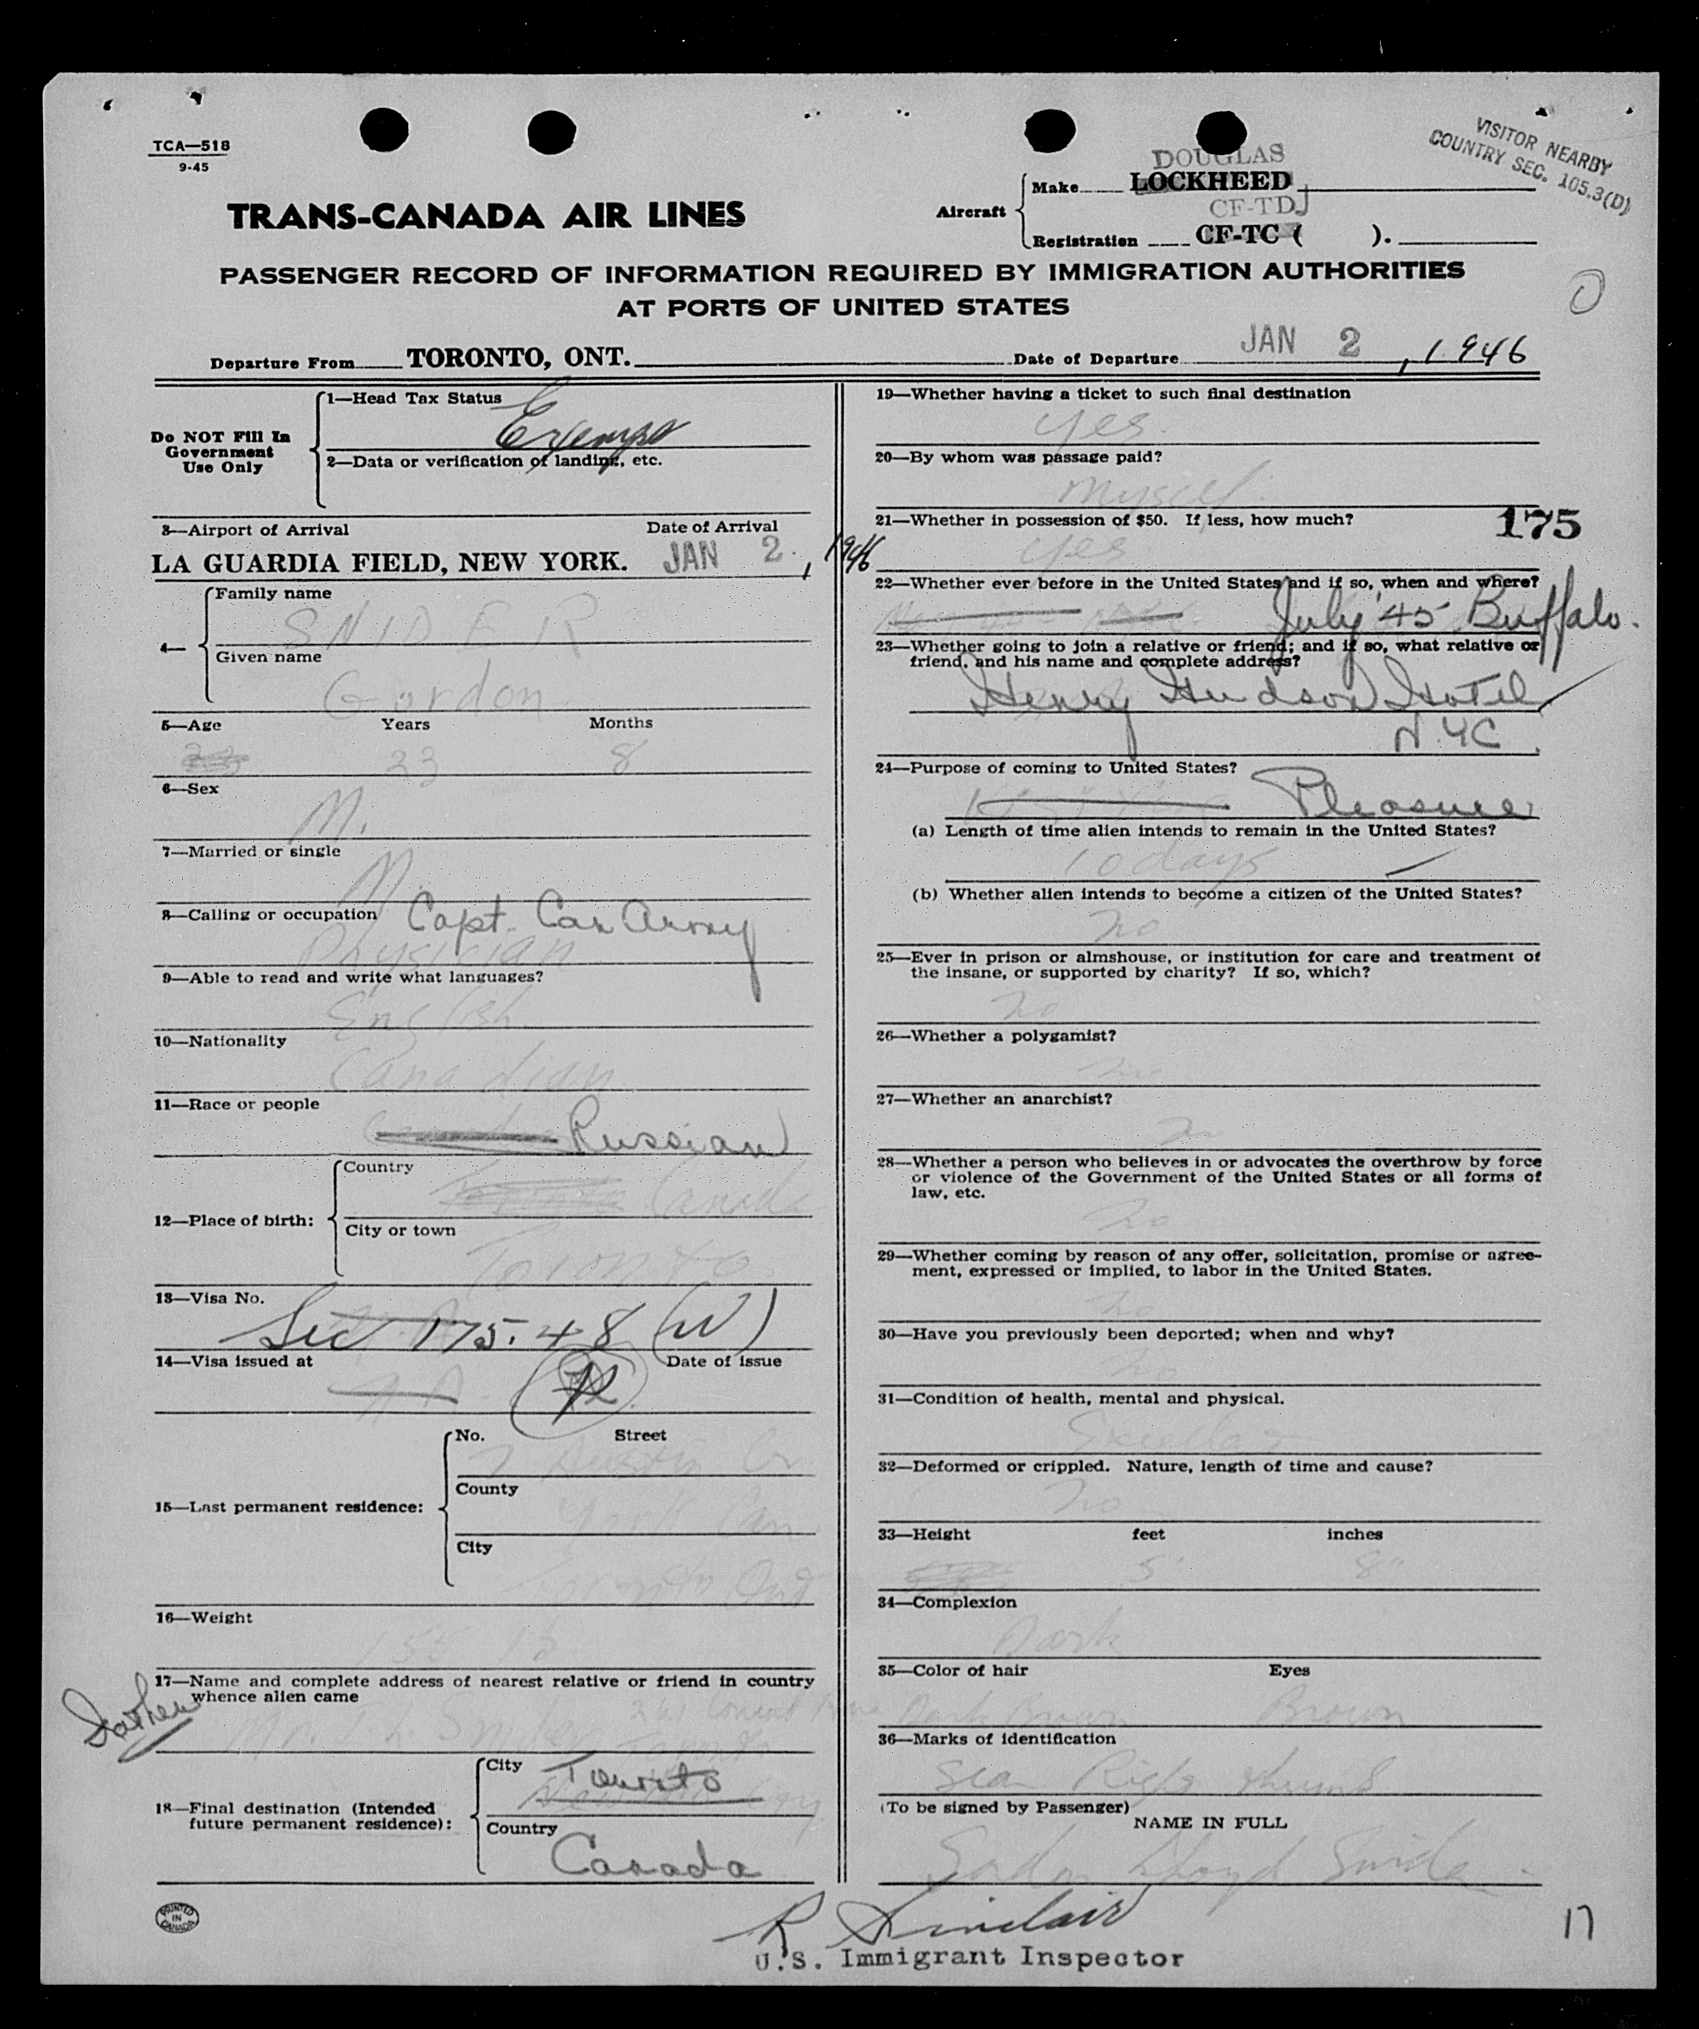 TCA—518
9-45
VISITOR NEARBY
COUNTRY SEC. 105.3(D)
TRANS-CANADA AIR LINES
Aircraft
DOUGLAS
Make LOCKHEED
CF-TDJ
Registration CF-TC ( ).
PASSENGER RECORD OF INFORMATION REQUIRED BY IMMIGRATION AUTHORITIES
AT PORTS OF UNITED STATES
O
Departure From TORONTO, ONT. Date of Departure JAN 2, 1946
Do NOT Fill In
Government
Use Only
1—Head Tax Status
Exempt
2—Data or verification of landing, etc.
3—Airport of Arrival Date of Arrival
LA GUARDIA FIELD, NEW YORK. JAN 2, 1946
4—
Family name
SNIDER
Given name
Gordon
5—Age Years Months
23 8
6—Sex
M.
7—Married or single
M
8—Calling or occupation Capt. Can Army
Physician
9—Able to read and write what languages?
English
10—Nationality
Canadian
11—Race or people
Russian
12—Place of birth:
Country
Canada
City or town
Toronto
13—Visa No.
Sec 175.48 (W)
14—Visa issued at Date of issue
15—Last permanent residence:
No. Street
7
County
York
City
Toronto Ont
16—Weight
155 lb
17—Name and complete address of nearest relative or friend in country
whence alien came
Father
Mr. Snider
Toronto
18—Final destination (Intended
future permanent residence):
City
Toronto
Country
Canada
PRINTED
IN
CANADA
19—Whether having a ticket to such final destination
Yes.
20—By whom was passage paid?
Myself.
21—Whether in possession of $50. If less, how much?
175
Yes
22—Whether ever before in the United States and if so, when and where?
July '45 Buffalo.
23—Whether going to join a relative or friend; and if so, what relative or
friend, and his name and complete address?
Henry Hudson Hotel
N.Y.C.
24—Purpose of coming to United States?
Pleasure
(a) Length of time alien intends to remain in the United States?
10 days
(b) Whether alien intends to become a citizen of the United States?
no
25—Ever in prison or almshouse, or institution for care and treatment of
the insane, or supported by charity? If so, which?
no
26—Whether a polygamist?
no
27—Whether an anarchist?
no
28—Whether a person who believes in or advocates the overthrow by force
or violence of the Government of the United States or all forms of
law, etc.
no
29—Whether coming by reason of any offer, solicitation, promise or agree-
ment, expressed or implied, to labor in the United States.
no
30—Have you previously been deported; when and why?
no
31—Condition of health, mental and physical.
32—Deformed or crippled. Nature, length of time and cause?
no
33—Height feet inches
5' 8"
34—Complexion
Dark
35—Color of hair Eyes
Dark Brown Brown
36—Marks of identification
Scar Right thumb
(To be signed by Passenger)
NAME IN FULL
Gordon Lloyd Snider
R Sinclair
U.S. Immigrant Inspector
17